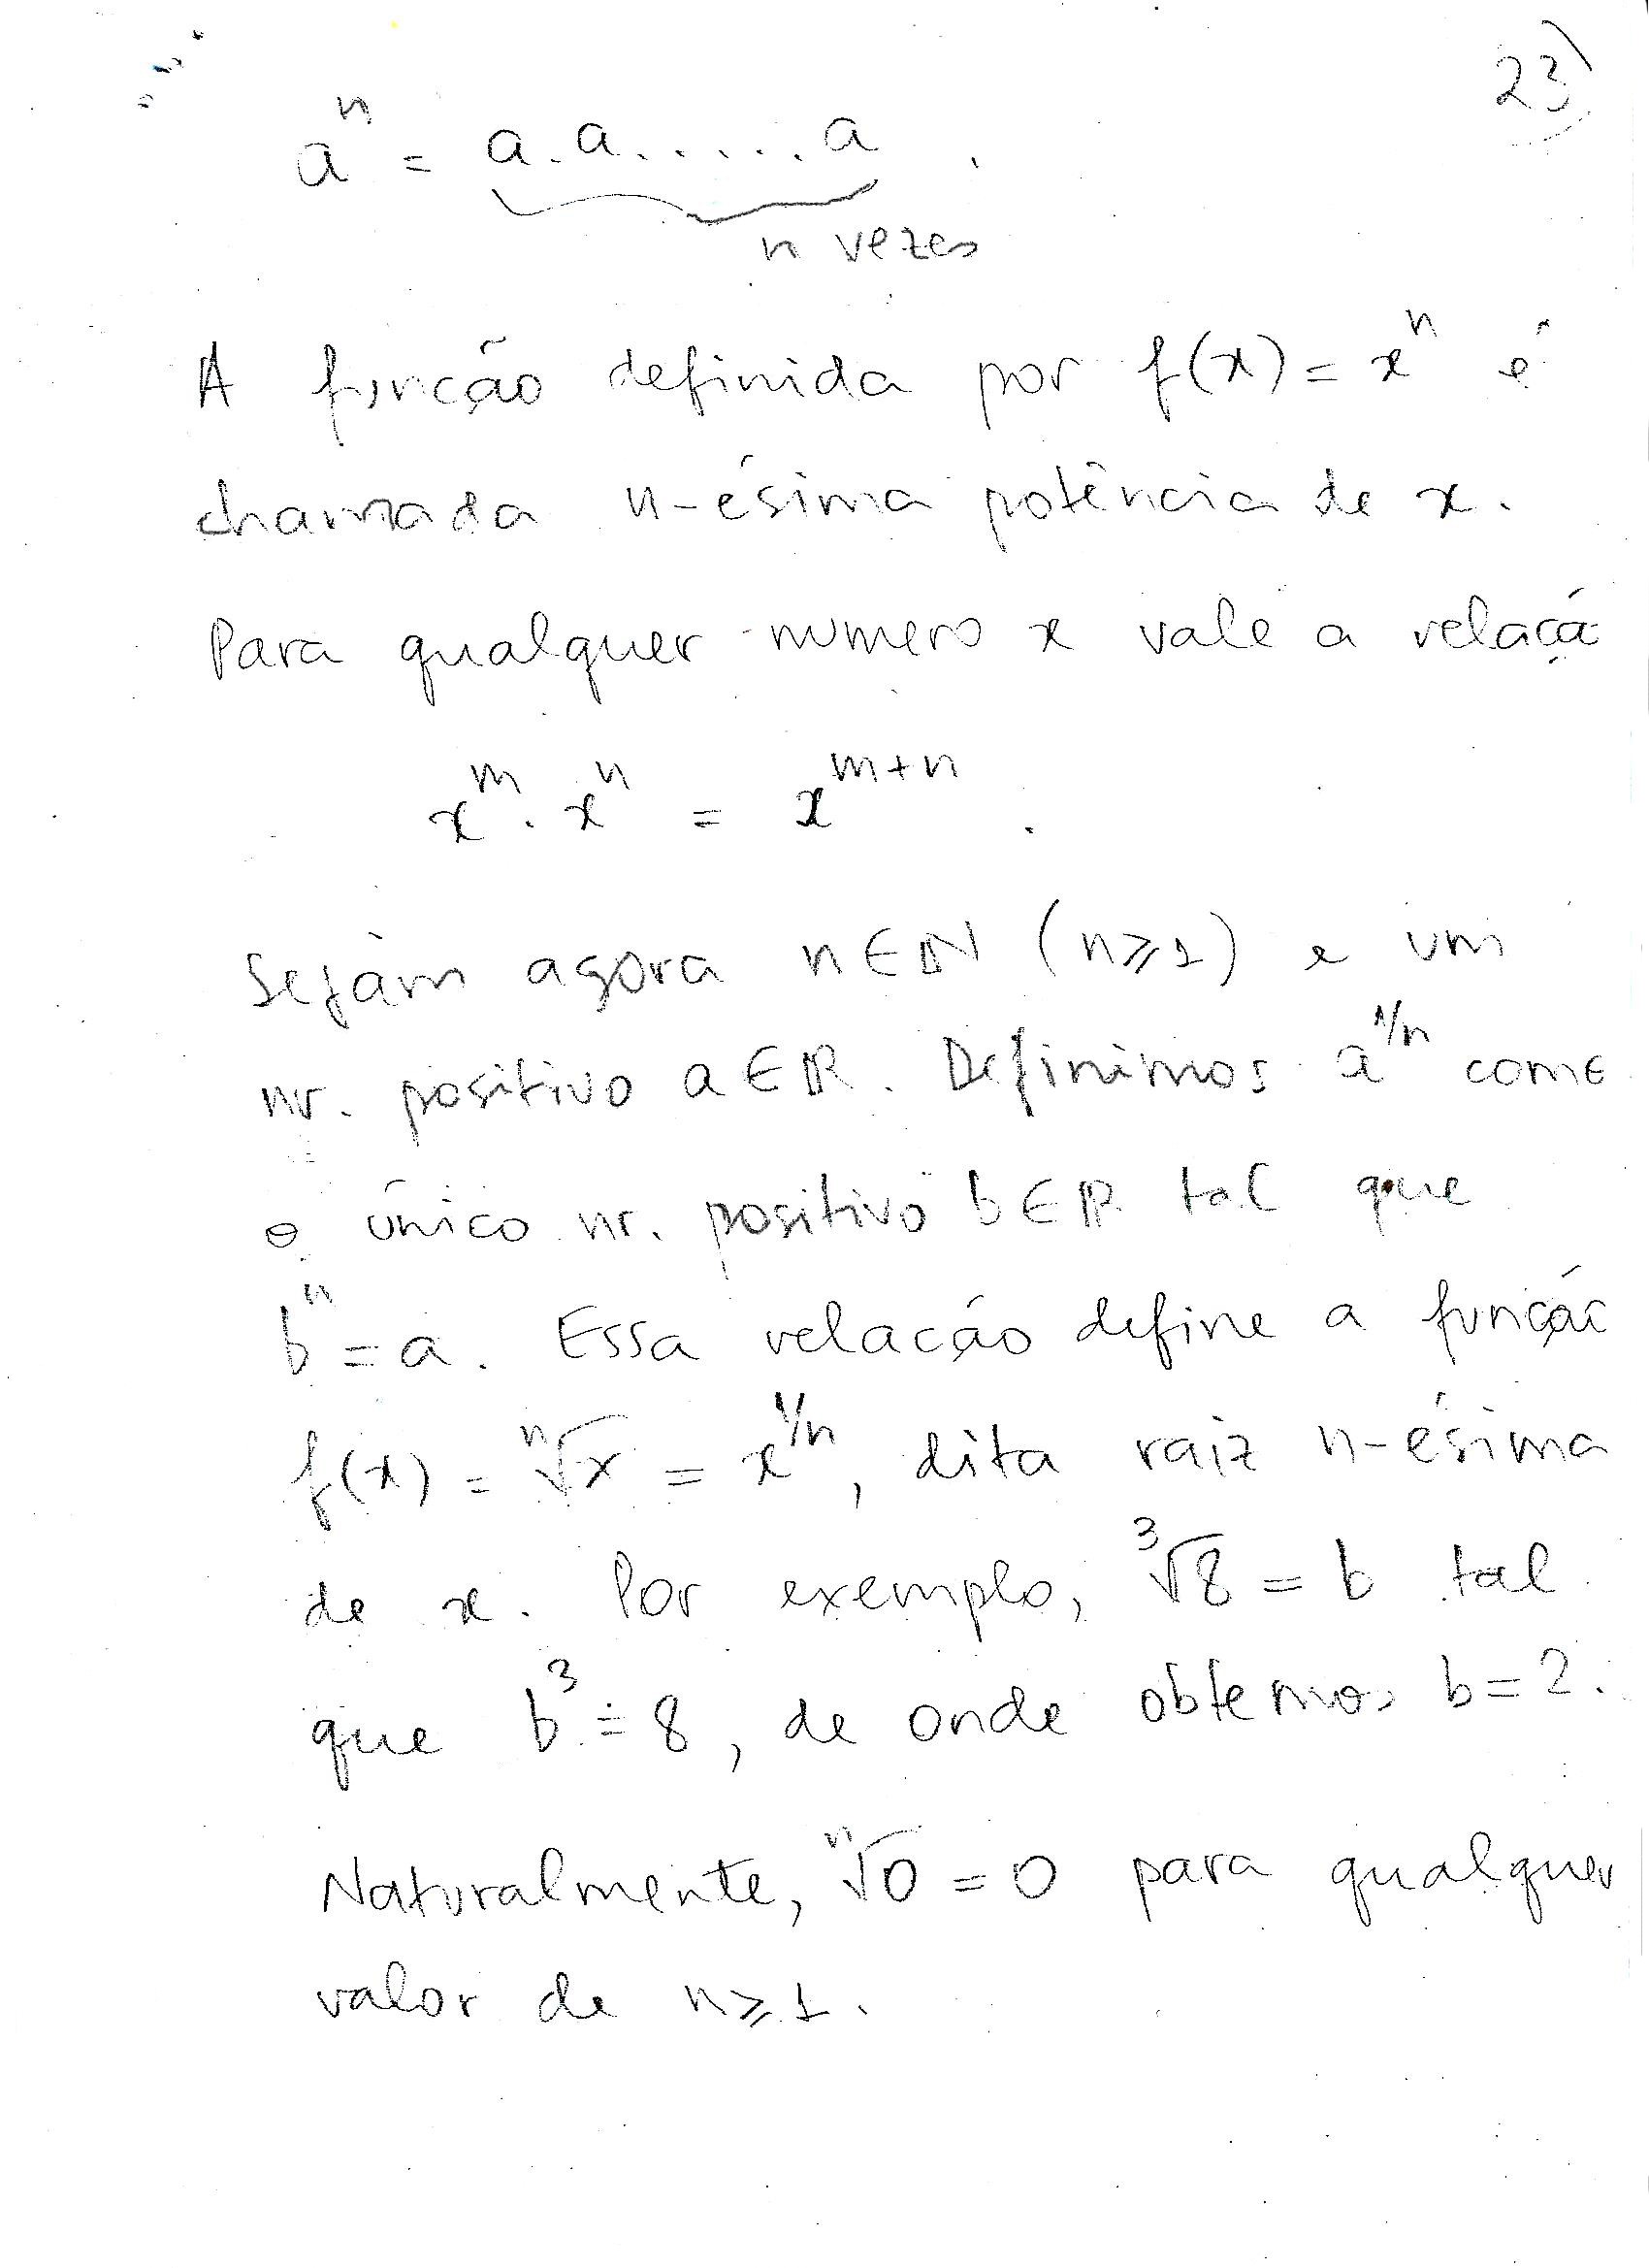 23)
aⁿ = a.a......a .
n vezes
A função definida por f(x) = xⁿ é
chamada n-ésima potência de x.
Para qualquer numero x vale a relaçã
xᵐ . xⁿ = xᵐ⁺ⁿ .
Sejam agora n ∈ ℕ (n ⩾ 1) e um
nr. positivo a ∈ ℝ. Definimos a^1/n como
o único nr. positivo b ∈ ℝ tal que
bⁿ = a. Essa relação define a função
f(x) = ⁿ√x = x^1/n, dita raiz n-ésima
de x. Por exemplo, ³√8 = b tal
que b³ = 8, de onde obtemos b = 2.
Naturalmente, ⁿ√0 = 0 para qualquer
valor de n ⩾ 1.